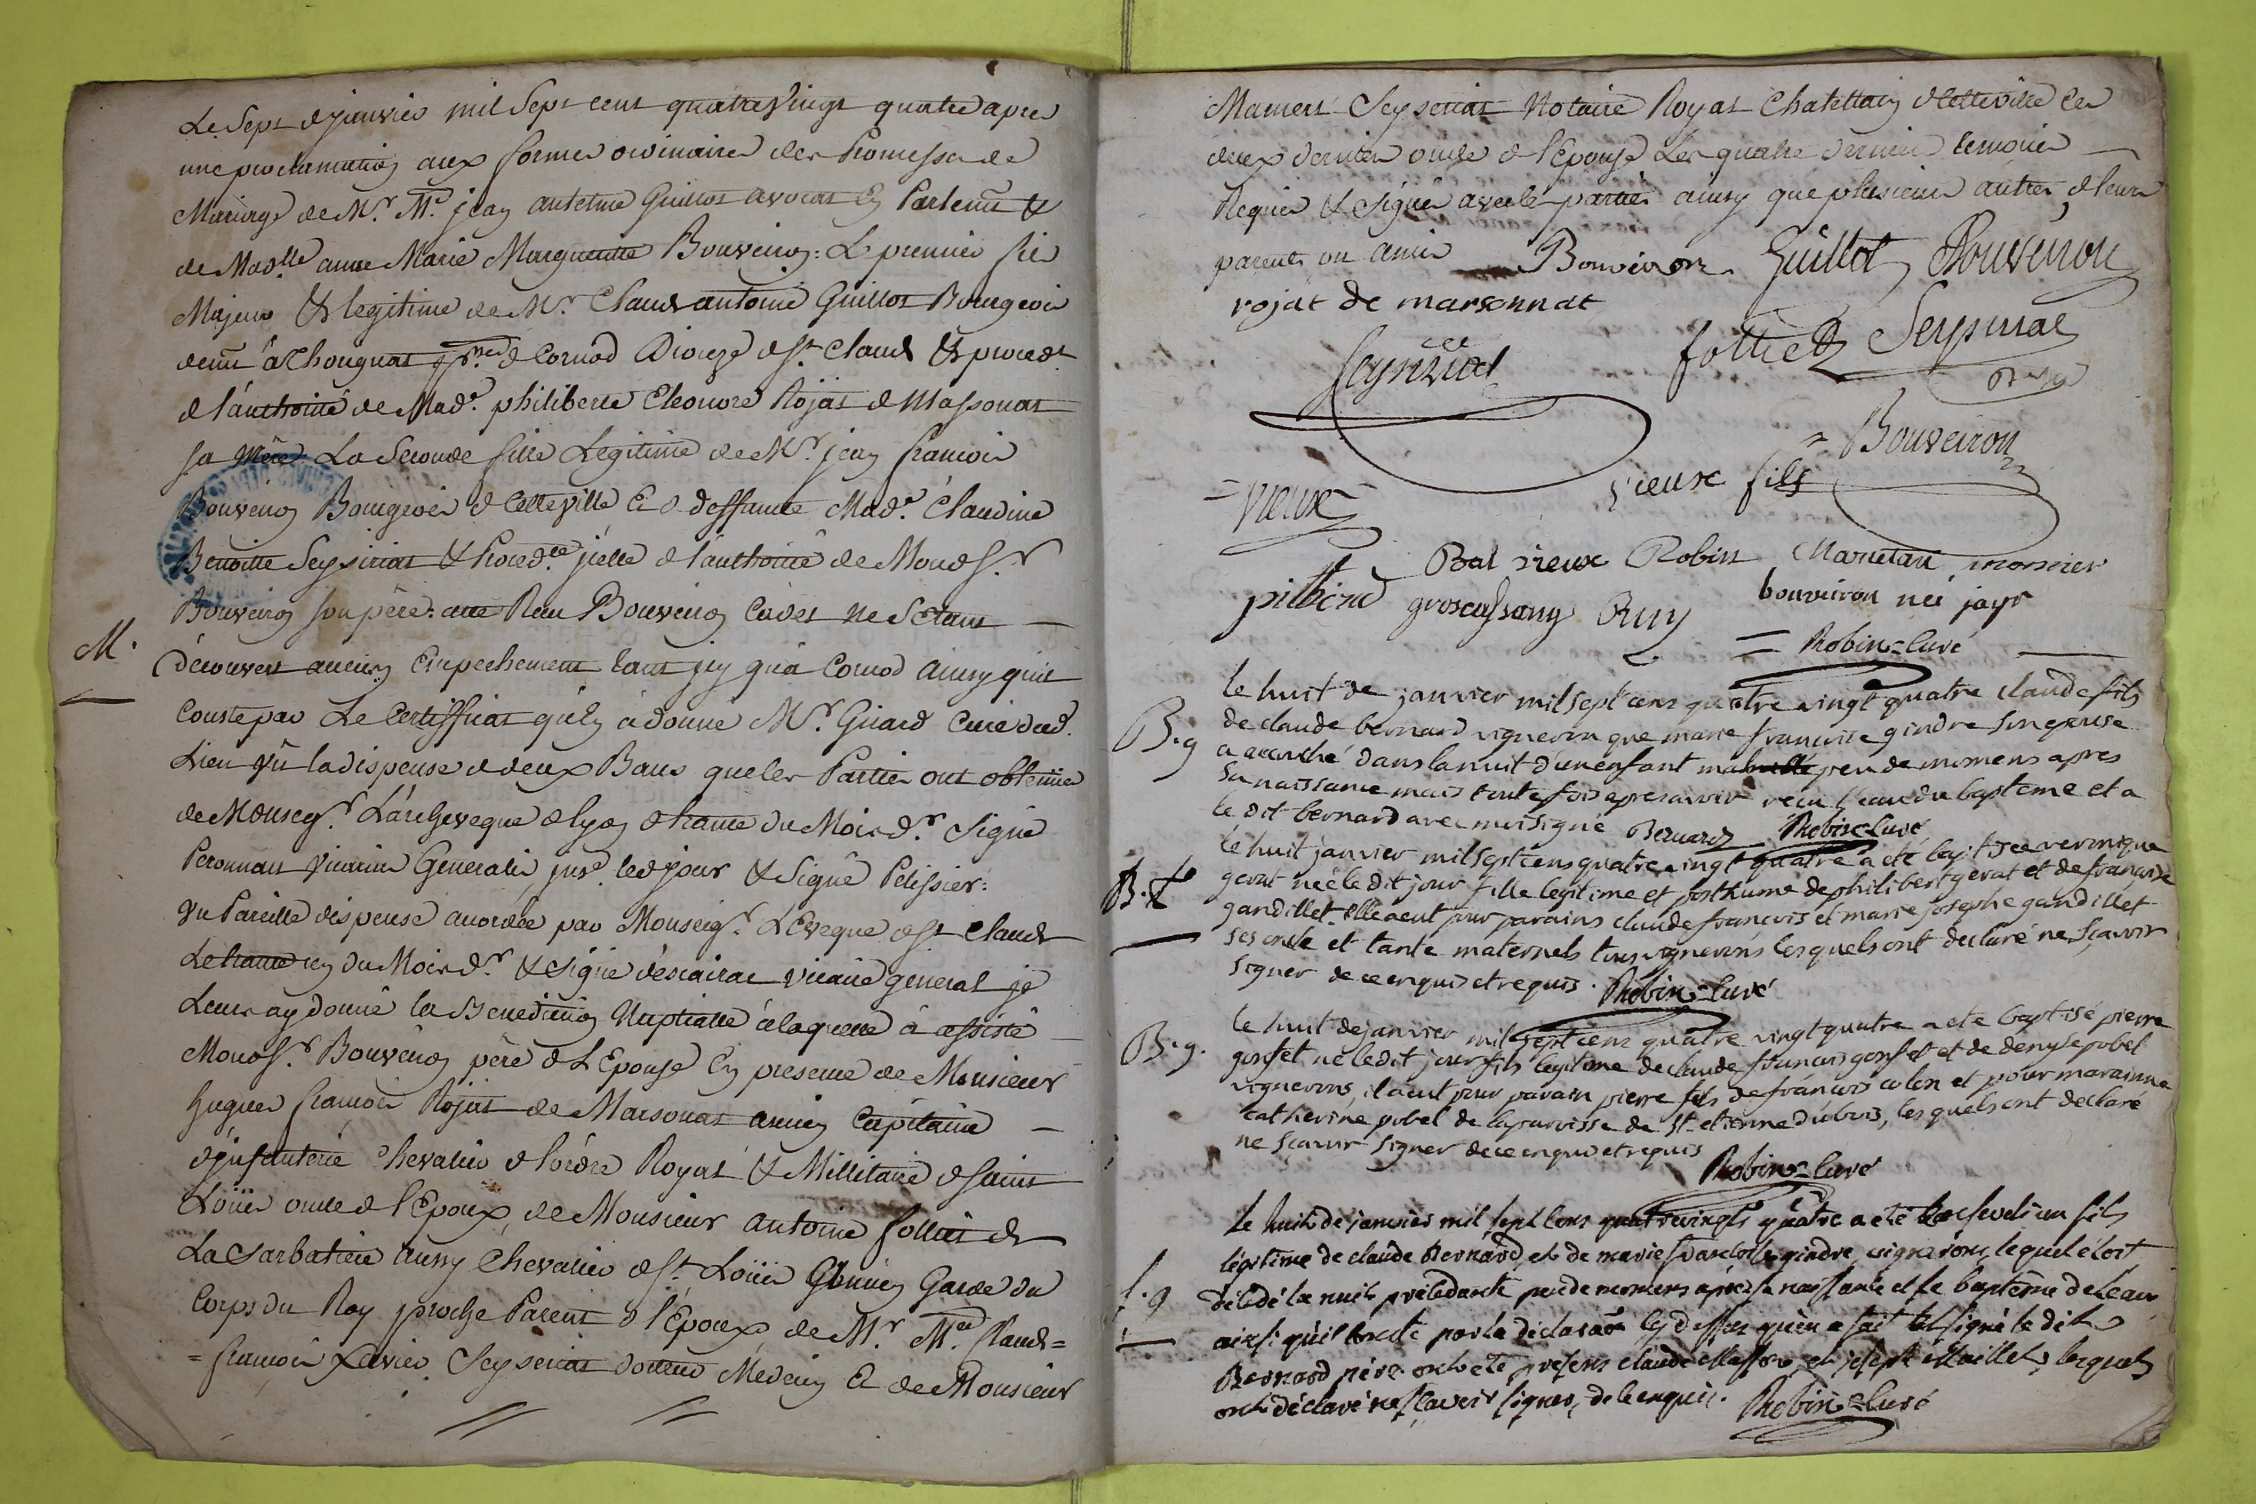 Le Sept de janvier mil Sept cent quatre Vingt quatre apres
une proclamation aux formes ordinaires des Promesses de
Mariage de Mr. Me. jean antelme Guillot avocat En Parlemt &
de Madlle. anne Marie Margueritte Bouveiron: Le premier fils
Majeur & legitime de Mr. Claude antoine Guillot Bourgeois
demt à Thougnat psse de Cornod Diocèze de St. Claude & procedt
de l'authorité de Made. philiberte Eleonore Rojat de Massonat
sa Mère La Seconde fille Legitime de Mr. jean francois
Bouveiron Bourgeois de Cette Ville E de deffunte Made. Claudine
Benoitte Seysiriat & Procedte. jcelle de l'authorité de Mond Sr
Bouveiron son père: autre Rau Bouveiron Cadet ne S'etant
M.
découvert aucun Empechement tant jcy qu'à Cornod ainsy qu'il
Conste par Le Certifficat qu'en à donné Mr. Girard Curé dud.
Lieu Vü la dispense de deux Bans que les Parties ont obtenüe
de Monseigr. L'archeveque de lyon de trante du Mois dr. Signé
Peronnant Vicarius Generalis, jnsé. led jour & Signé Pelissier:
Vu Pareille dispense accordée par Monseigr. L'Eveque de St. Claude
Le trante un du Mois dr. & Signé descairac Vicaire general je
Leur ay donné la Benediction Nuptialle à laquelle à assisté
Mond Sr. Bouveiron père de L'Epouse En presence de Monsieur
hugues francois Rojat de Marsonat ancien Capitaine
d'jnfanterie Chevalier de l'ordre Royal & Millitaire de saint
Loüis oncle de l'Epoux, de Monsieur antoine folliet de
La Sarbatiere aussy Chevalier de St. Loüis Garde du
Corps du Roy proche Parent de l'Epoux, de Mr. Me. Claude=
=francois Xavier Seyseriat docteur Medecin E de Monsieur
Mamert Seyseriat Notaire Royal Chatellain de Cette Ville les
deux derniers oncles de l'Epouse Les quatre derniers temoins
Requis & Signés avec les parties ainsy que plusieurs autres de leurs
parents ou amis Bouveiron Guillot Bouveiron
rojat de marsonnat
Seysiriat folliet Seysiriat
= Bouveiron
= Vieux = Vieux fils
Bal Vieux Robin Marietan monnier
pillerd groscassang Ruy bouveiron née jayr
= Robin = Curé
B.g
le huit de janvier mil sept cens quatre vingt quatre claude fils
de claude bernard vigneron que marie francoise gindre son epouse
a accouché dans la nuit d'un enfant male peu de momens apres
sa naissance mais toutefois apres avoir recu l'eau du bapteme et a
le dit bernard avec moi signé Bernard Robin=Curé
B.f
le huit janvier mil sept cens quatre vingt quatre a eté baptisée veronique
gerat née le dit jour fille legitime et posthume de philibert gerat et de francoise
gandillet. Elle a eut pour parains claude francois et marie josephe gandillet
ses oncle et tante maternels tous vignerons lesquels ont declaré ne scavoir
signer de ce enquis et requis. Robin=Curé
B.g.
le huit de janvier mil sept cens quatre vingt quatre a eté baptisé pierre
gonset né le dit jour fils legitime de claude francois gonset et de denyse pobel
vignerons, il a eut pour parain pierre fils de francois colon et pour marainne
catherine pobel de la paroisse de St. etienne du bois, lesquels ont declaré
ne scavoir signer de ce enquis et requis
Robin=Curé
S.g
le huit de janvier mil sept cens quatre vingts quatre a eté enseveli un fils
légitime de claude Bernard, et de marie francoise gindre vignerons, lequel étoit
décédé la nuit précédante peu de momens après sa naissance et le baptême de l'eau
ainsi qu'il conste par la déclaraon cy dessus qu'en a fait et signé le dit
Bernard père. ont été présens claude Masson et joseph Maillet lesquels
ont déclaré ne scavoir signer, de ce enquis. Robin=Curé